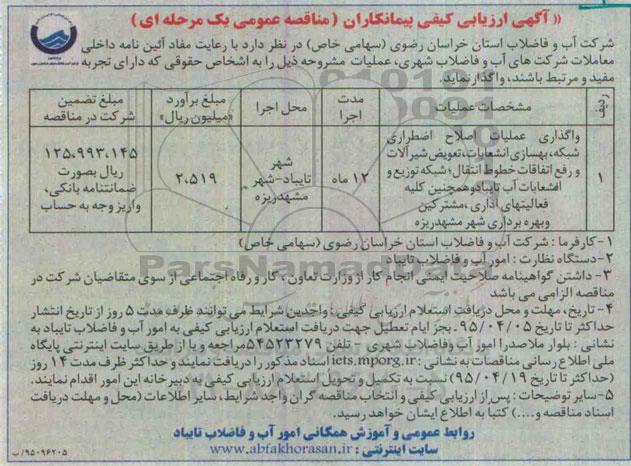 « آگهی ارزیابی کیفی پیمانکاران ( مناقصه عمومی یک مرحله ای ) »
شرکت آب و فاضلاب استان خراسان رضوی (سهامی خاص) در نظر دارد با رعایت مفاد آئین نامه داخلی
معاملات شرکت های آب و فاضلاب شهری، عملیات مشروحه ذیل را به اشخاص حقوقی که دارای تجربه
مفید و مرتبط باشند، واگذار نماید.
ردیف
مشخصات عملیات
مدت اجرا
محل اجرا
مبلغ برآورد «میلیون ریال»
مبلغ تضمین شرکت در مناقصه
۱
واگذاری عملیات اصلاح اضطراری
شبکه، بهسازی انشعابات، تعویض شیرآلات
و رفع اتفاقات خطوط انتقال، شبکه توزیع و
انشعابات آب تایباد و همچنین کلیه
فعالیتهای اداری، مشترکین
وبهره برداری شهر مشهدریزه
۱۲ ماه
شهر
تایباد-شهر
مشهدریزه
۲،۵۱۹
۱۲۵،۹۹۳،۱۴۵
ریال بصورت
ضمانتنامه بانکی،
واریز وجه به حساب
۱-کارفرما: شرکت آب و فاضلاب استان خراسان رضوی (سهامی خاص)
۲-دستگاه نظارت: امور آب و فاضلاب تایباد
۳- داشتن گواهینامه صلاحیت ایمنی انجام کار از وزارت تعاون، کار و رفاه اجتماعی از سوی متقاضیان شرکت در
مناقصه الزامی می باشد
۴- تاریخ، مهلت و محل دریافت استعلام ارزیابی کیفی: واجدین شرایط می توانند ظرف مدت ۵ روز از تاریخ انتشار
حداکثر تا تاریخ ۹۵/۰۴/۰۵ ـ بجز ایام تعطیل جهت دریافت استعلام ارزیابی کیفی به امور آب و فاضلاب تایباد به
نشانی: بلوار ملاصدرا امور آب وفاضلاب شهری - تلفن ۵۴۵۲۳۲۷۹ مراجعه و یا از طریق سایت اینترنتی پایگاه
ملی اطلاع رسانی مناقصات به نشانی: iets.mporg.ir اسناد مذکور را دریافت نمایند و حداکثر ظرف مدت ۱۴ روز
(حداکثر تا تاریخ ۹۵/۰۴/۱۹) نسبت به تکمیل و تحویل استعلام ارزیابی کیفی به دبیرخانه این امور اقدام نمایند.
۵-سایر توضیحات: پس از ارزیابی کیفی و انتخاب مناقصه گران واجد شرایط، سایر اطلاعات (محل و مهلت دریافت
اسناد مناقصه و....) کتبا به اطلاع ایشان خواهد رسید.
روابط عمومی و آموزش همگانی امور آب و فاضلاب تایباد
سایت اینترنتی: www.abfakhorasan.ir
۹۵۰۹۶۲۰۵/ب